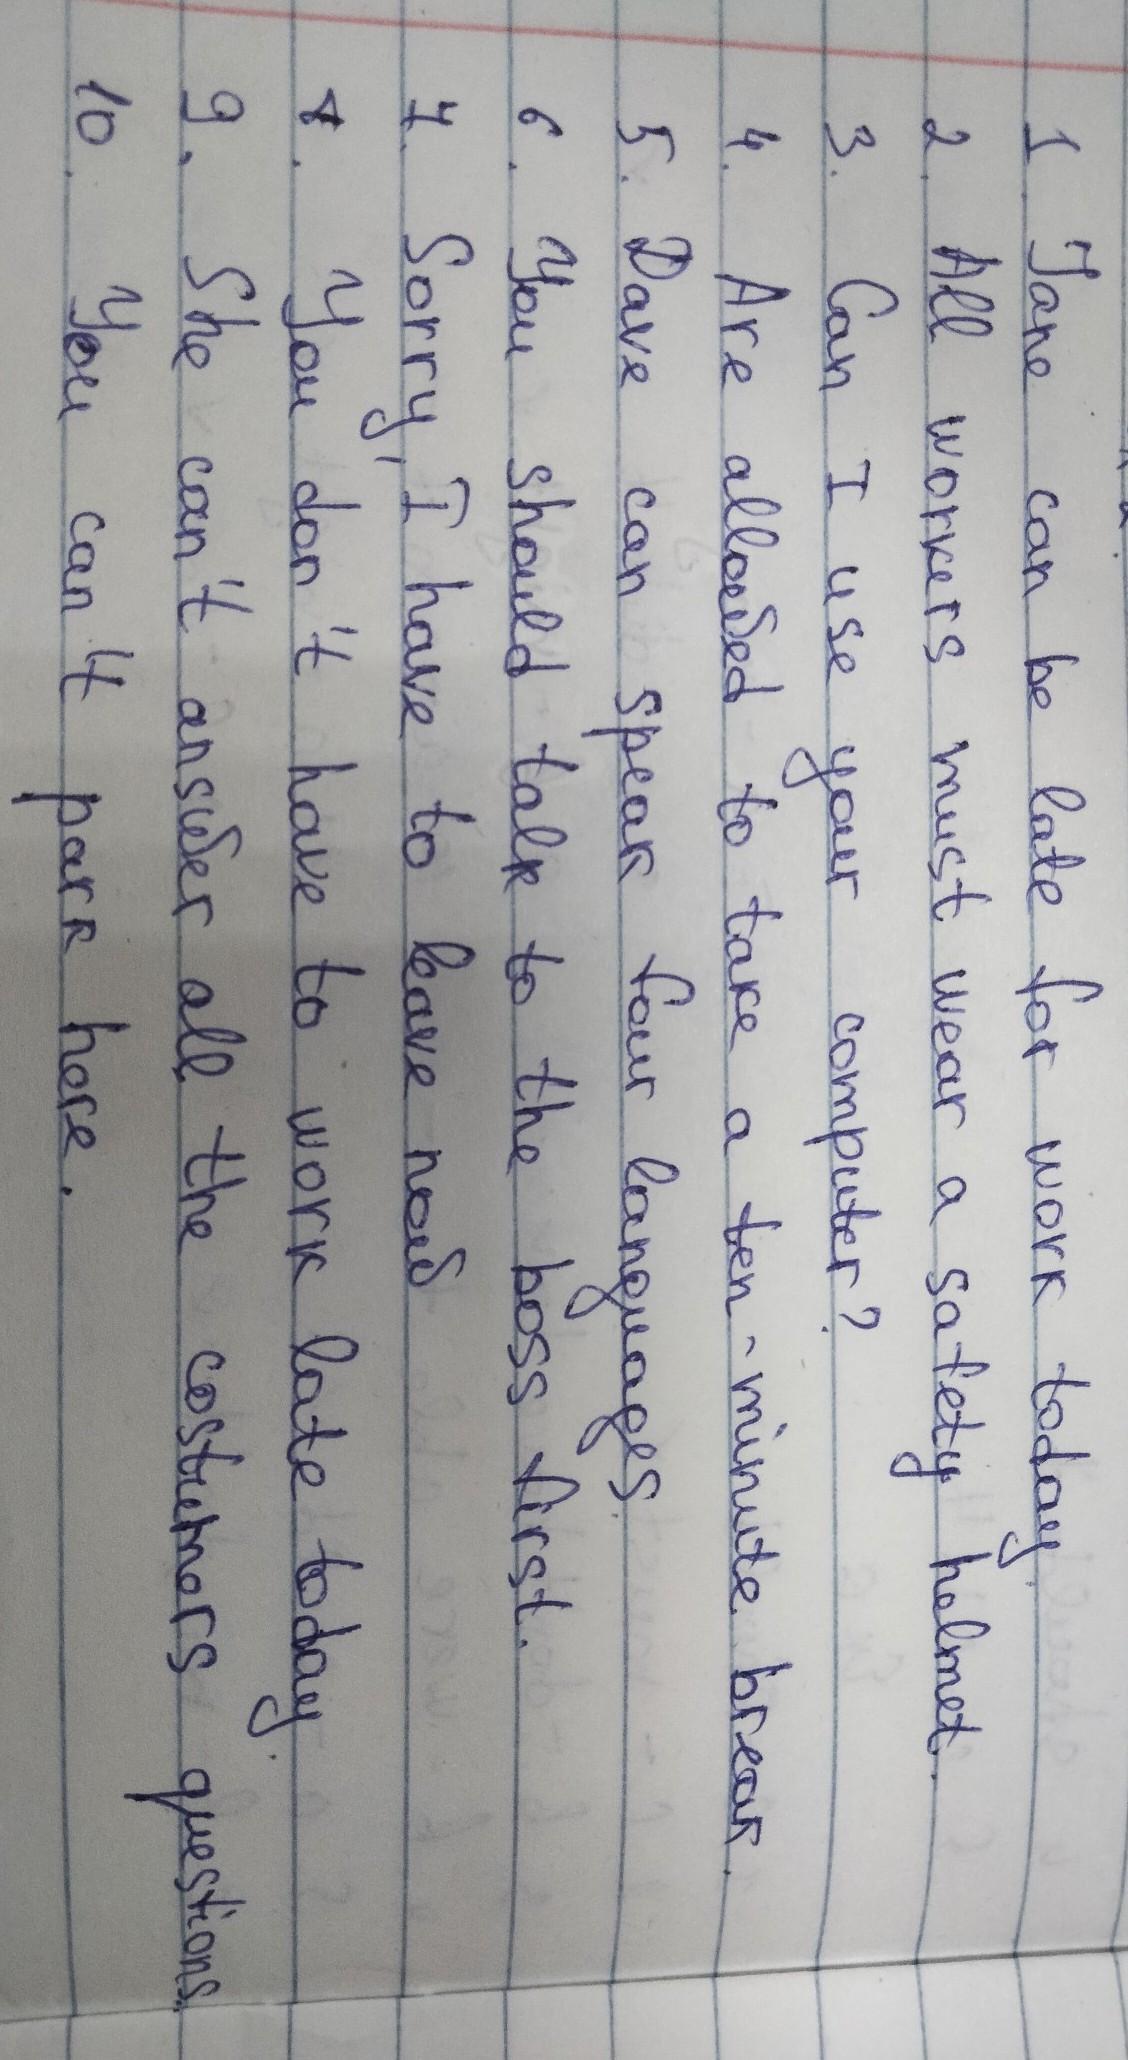 1. Jane can be late for work today.
2. All workers must wear a safety helmet.
3. Can I use your computer?
4. Are allowed to take a ten-minute break.
5. Dave can speak four languages.
6. You should talk to the boss first.
7. Sorry, I have to leave now
8. You don't have to work late today.
9. She can't answer all the costumers questions.
10. You can't park here.